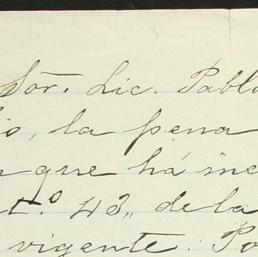 Sõr. Lic. Pabl
io, la pena
n que há inc
t.º 43,, de la
vigente. Po